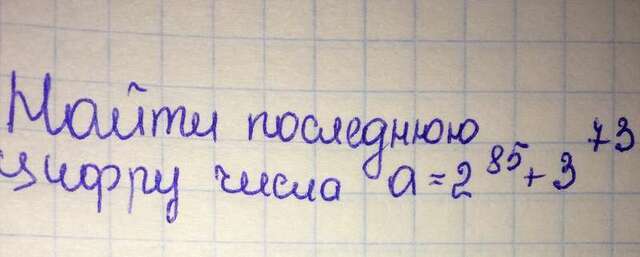 Найти последнюю
цифру числа a = 2⁸⁵ + 3⁷³